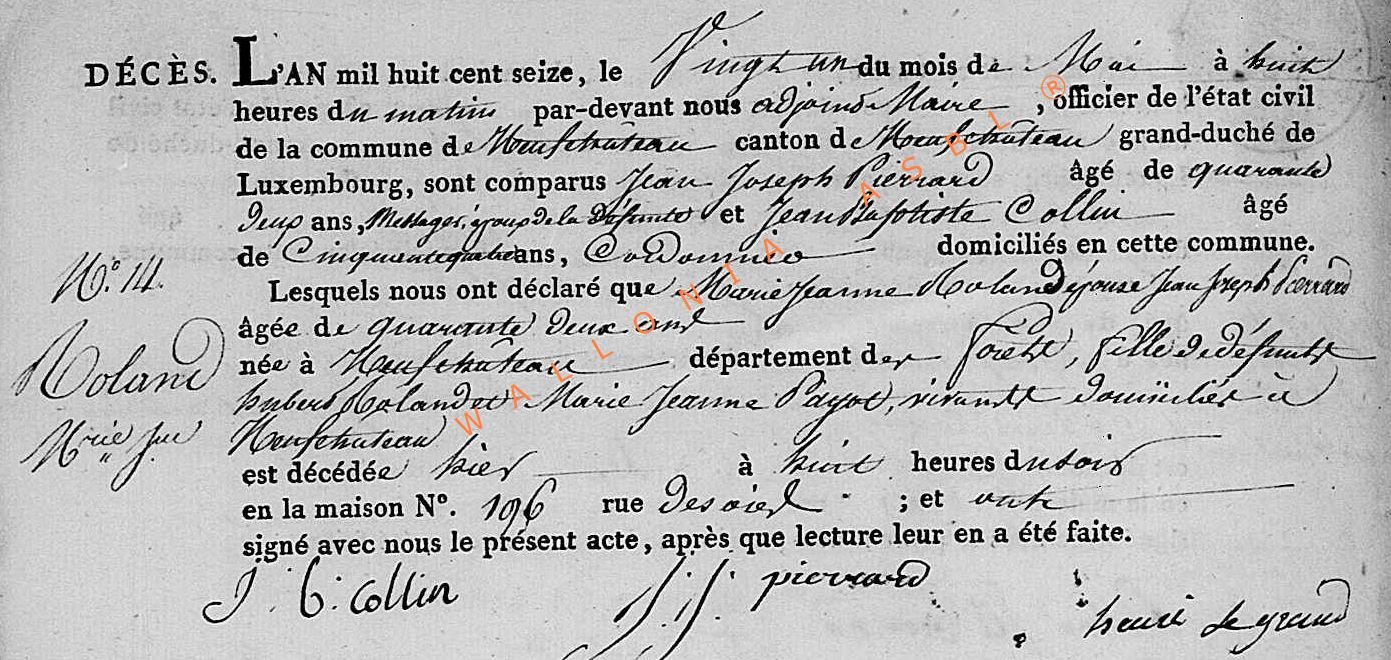 DÉCÈS. L'AN mil huit cent seize, le Vingt un du mois de Mai à huit
heures du matin par-devant nous adjoint Maire, officier de l'état civil
de la commune de Neufchateau canton de Neufchateau grand-duché de
Luxembourg, sont comparus Jean Joseph Pierrard âgé de quarante
deux ans, Messager, époux de la défunte et Jean Baptiste Collin âgé
de Cinquante quatre ans, Cordonnier domiciliés en cette commune.
N.° 14.
Lesquels nous ont déclaré que Marie Jeanne Roland épouse Jean Joseph Pierrard
âgée de quarante deux ans
Roland
née à Neufchateau département des forêts, fille de défunts
hubert Roland et Marie Jeanne Payot, vivants domiciliés à
Mrie Jne
Neufchateau
est décédée hier à huit heures du soir
en la maison N°. 196 rue ; et ont
signé avec nous le présent acte, après que lecture leur en a été faite.
J. b. Collin J. J. pierrard henri Legrand
WALLONIA ASBL ®